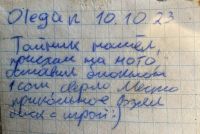 Olegан 10.10.23
Тайник нашёл,
приехал на мото,
оставил
1 com сверло Место
прикольное взял
диск с игрой :)